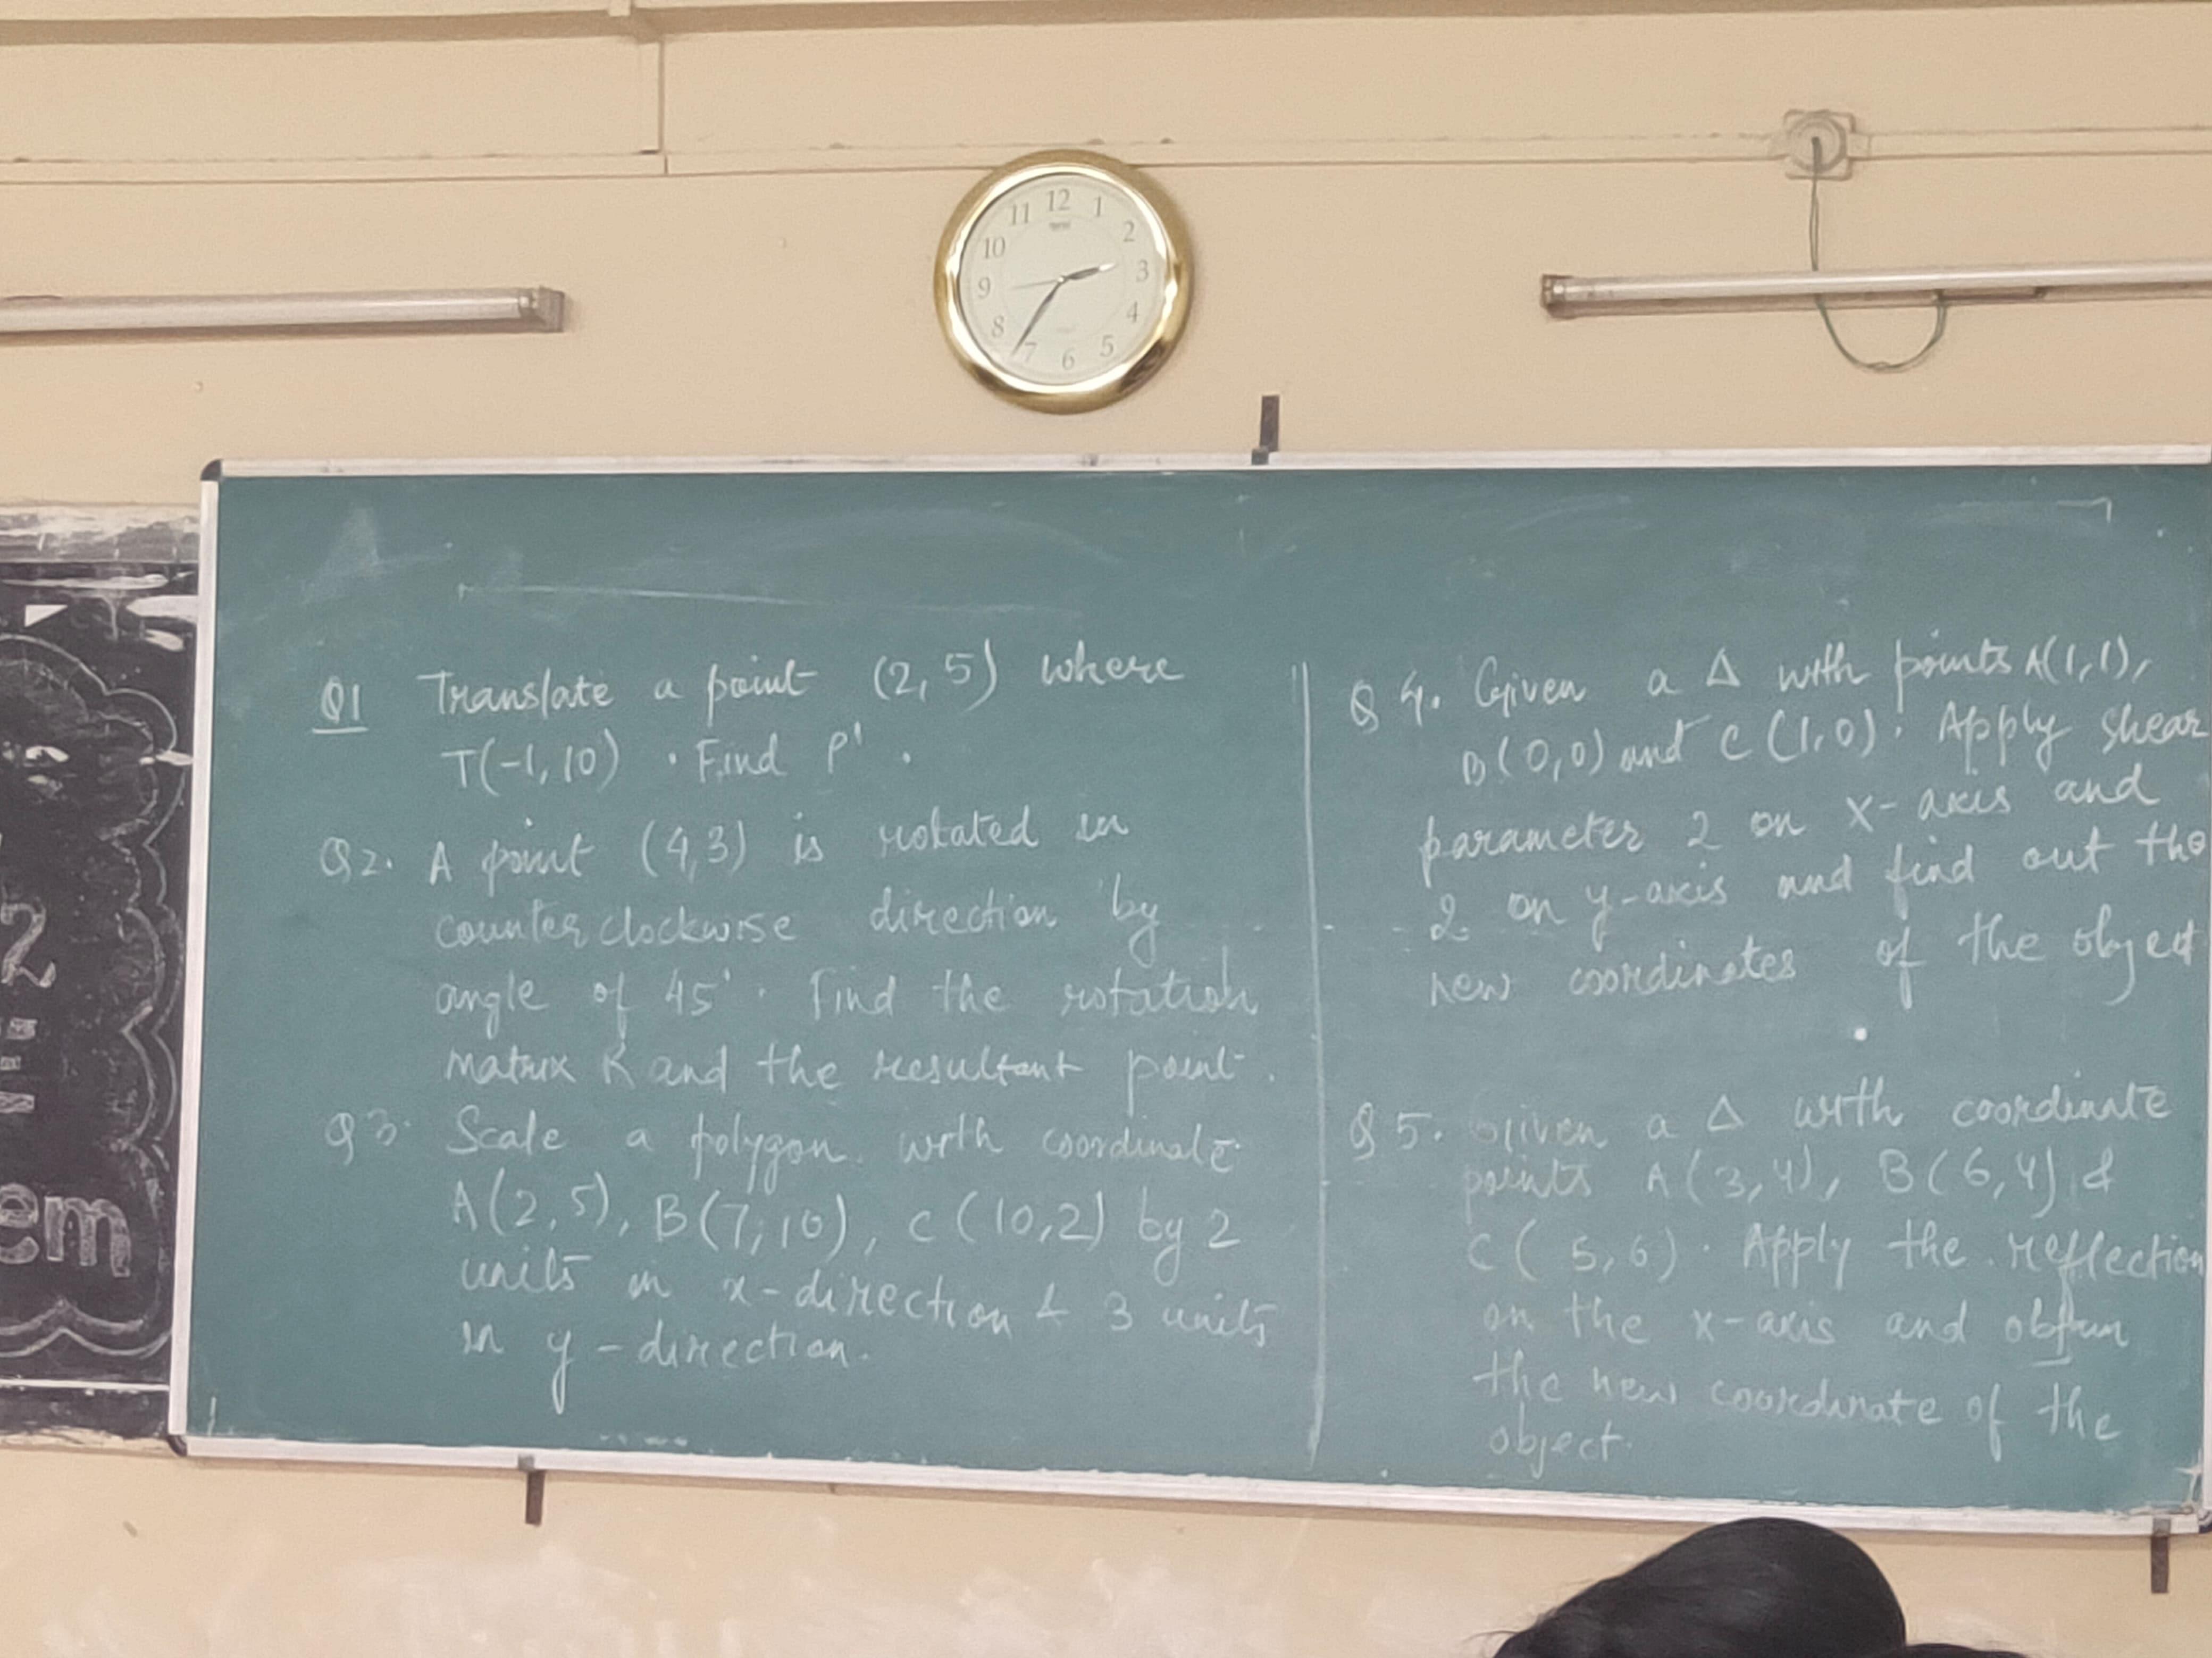 12
1
2
3
4
5
6
7
8
9
10
11
Q1 Translate a point (2,5) where
T(-1,10). Find P'.
Q2. A point (4,3) is rotated in
counter clockwise direction by
angle of 45°. Find the rotation
matrix R and the resultant point.
Q3. Scale a polygon with coordinate
A(2,5), B(7,10), C(10,2) by 2
units in x-direction & 3 units
in y-direction.
Q4. Given a Δ with points A(1,1),
B(0,0) and C(1,0). Apply shear
parameter 2 on X-axis and
2 on y-axis and find out the
new coordinates of the object
Q5. Given a Δ with coordinate
points A(3,4), B(6,4) &
C(5,6). Apply the reflection
on the x-axis and obtain
the new coordinate of the
object.
2
em